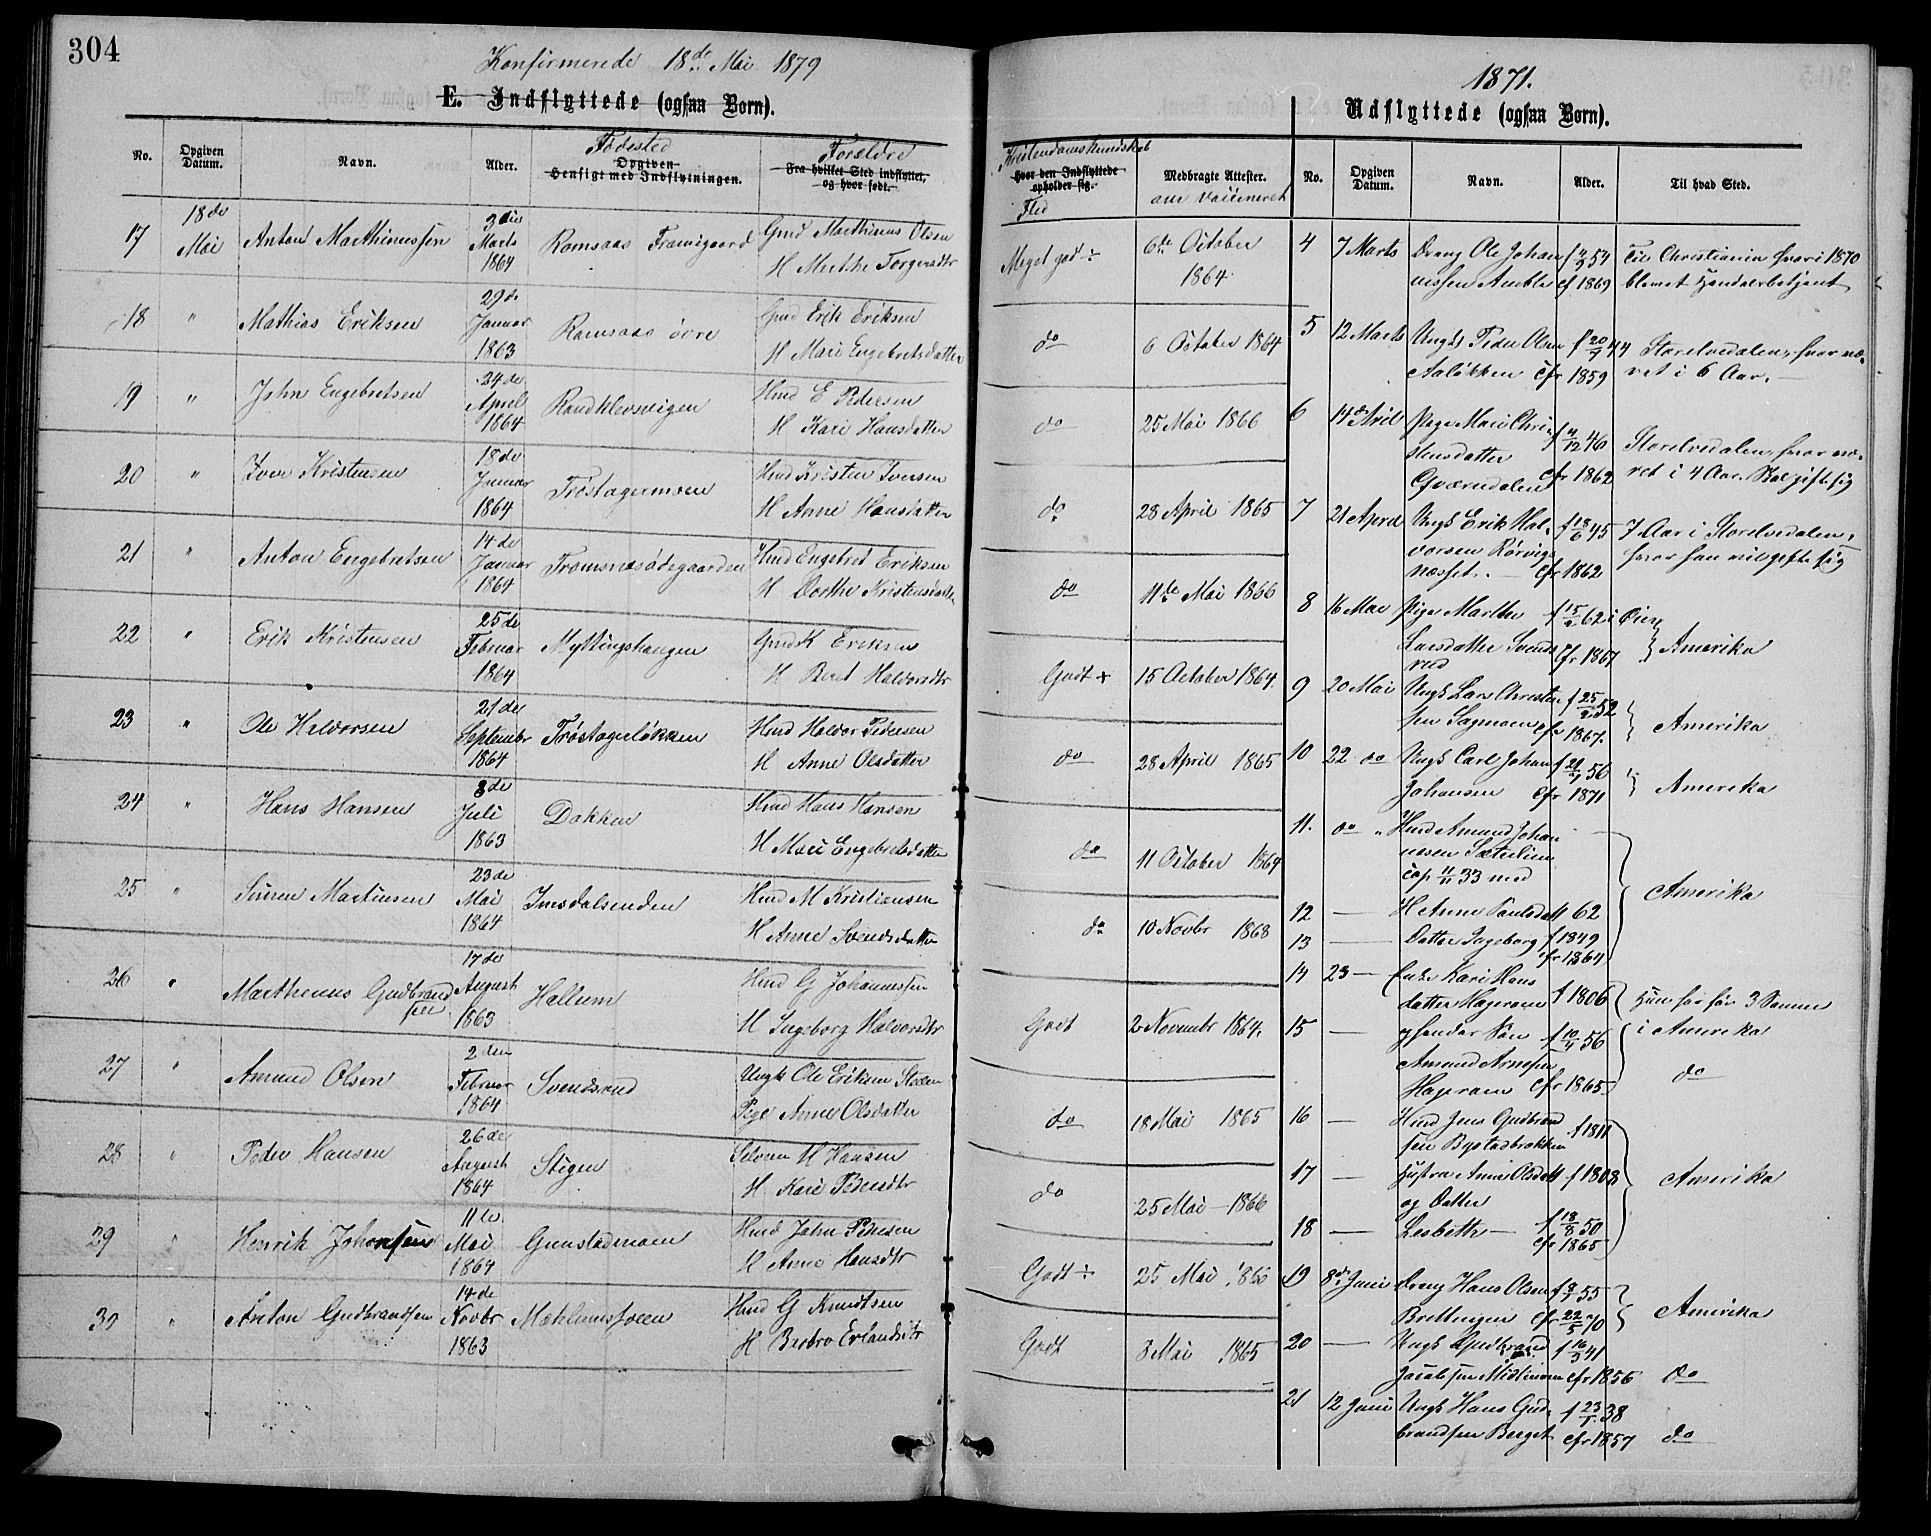 304
Konfirmerede 18de Mai 1879
E. Indflyttede (ogsaa Børn).
No.
Opgiven Datum.
Navn.
Alder.
Fødested
Opgiven
Hensigt med Indflytningen.
Forældre
Fra hvilket Sted indflyttet,
og hvor født.
Kristendomskundskab
Hvor den Indflyttede
opholder sig.
Flid
Medbragte Attester.
naar vaccineret
17 18de Mai Anton Marthinussen 3die Marts 1864 Ramsaas Framigaard Gmd Marthinus Olsen
H Marthe Torgersdtr Meget god ÷ 6te October 1864
18 " Mathias Eriksen 29de Januar 1863 Ramsaas øvre Gmd Erik Eriksen
H Mari Engebretsdatter do 6 October 1864
19 " John Engebretsen 24de April 1864 Randklevsveigen Hmd E Pedersen
H Kari Hansdatter do 25 Mai 1866
20 " Iver Kristensen 18de Januar 1864 Trøstagermoen Hmd Kristen Iversen
H Anne Hansdatter do 28 April 1865
21 " Anton Engebretsen 14de Januar 1864 Tromsnæsødegaarden Hmd Engebret Eriksen
H Dorthe Kristensdatter do 11te Mai 1866
22 " Erik Kristensen 25de Februar 1864 Myttingshaugen Gmd K Eriksen
H Berit Halvorsdtr Godt + 15 October 1864.
23 " Ole Halvorsen 21de Septembr 1864 Trøstagerløkken Hmd Halvor Pedersen
H Anne Olsdatter do 28 April 1865
24 " Hans Hansen 8de Juli 1863 Dakken Hmd Hans Hansen
H Mari Engebretsdatter do 11 October 1864
25 " Simen Martinsen 23de Mai 1864 Imsdalsenden Hmd M Kristiansen
H Anne Svendsdatter do 10 Novbr 1868
26 " Marthinus Gudbrandsen 17de August 1863 Hallum Hmd G Johannessen
H Ingeborg Halvorsdtr Godt 2 Novembr 1864.
27 " Amund Olsen 2den Februar 1864 Svendsrud Ungk Ole Eriksen
Pige Anne Olsdatter do 18 Mai 1865
28 " Peder Hansen 26de August 1864 Stigen Selveier H Hansen
H Kari Pedersdtr do 25 Mai 1866
29 " Henrik Johansen 11te Mai 1864 Gunstadmoen Hmd John Pedersen
H Anne Hansdtr Godt ÷ 25 Mai 1866
30 " Anton Gudbrandsen 14de Novbr 1863 Mæhlumssveen Hmd G Knudtsen
H Berbro Erlandsdtr Godt 8 Mai 1865
1871.
Udflyttede (ogsaa Børn).
No.
Opgiven Datum.
Navn.
Alder.
Til hvad Sted.
4 7 Marts Dreng Ole Johan f 9/9 54 Til Christiania hvor i 1870
nessen Amble cf 1869 blevet Handelsbetjent
5 12 Marts Ungk Peder Olsen f 20/7 44 Storelvedalen, hvor væ-
Aaløkken cfr 1859 ret i 6 Aar.
6 14de April Pige Mari Chri- f 4/12 46 Storelvedalen, hvor væ-
stensdatter
Gværndalen cfr 1862 ret i 4 Aar. Skal gifte sig
7 21 April Ungk Erik Hal- f 18/6 45 7 Aar i Storelvedalen,
vorsen Rørvigs hvor han vil gifte sig
næsset. cfr 1862
8 16 Mai Pige Marthe f 15/2 62 i Øier
Larsdatter Svends cfr 1867 Amerika
rud
9 20 Mai Ungk Lars Christen f 25/2 52
sen Sagmoen cfr 1867. Amerika
10 22 do Ungk Carl Johan f 21/7 56
Johansen cfr 1871 Amerika
11. do " Hmd Amund Johan
nesen Sæterlien
cop 4/11 33 med
12 — H Anne Paulsdatt 62 Amerika
13 — Datter Ingeborg f 1849
cfr 1864
14 23 — Enke Kari Hans
datter Hageram f 1806 Hun har før 3 Sønner
15 — og hendes Søn f 10/4 56 i Amerika
Amund Arnesen
Hageram cfr 1865 do
16 — Hmd Jens Gudbrand
sen Bystadbrækken f 1811
17 — Hustru Anne Olsdatt f 1808 Amerika
og Datter
18 — Lisbeth — f 18/8 50
cfr 1865
19 8de Juni Dreng Hans Olsen f 8/7 55
Brettingen cfr 22/5 70 Amerika
20 — Ungk Gudbrand f 16/3 41
Jacobsen Midtlinoen cfr 1856 do
21 12 Juni Ungk Hans Gud- f 23/1 38
brandsen Berget cfr 1857 do